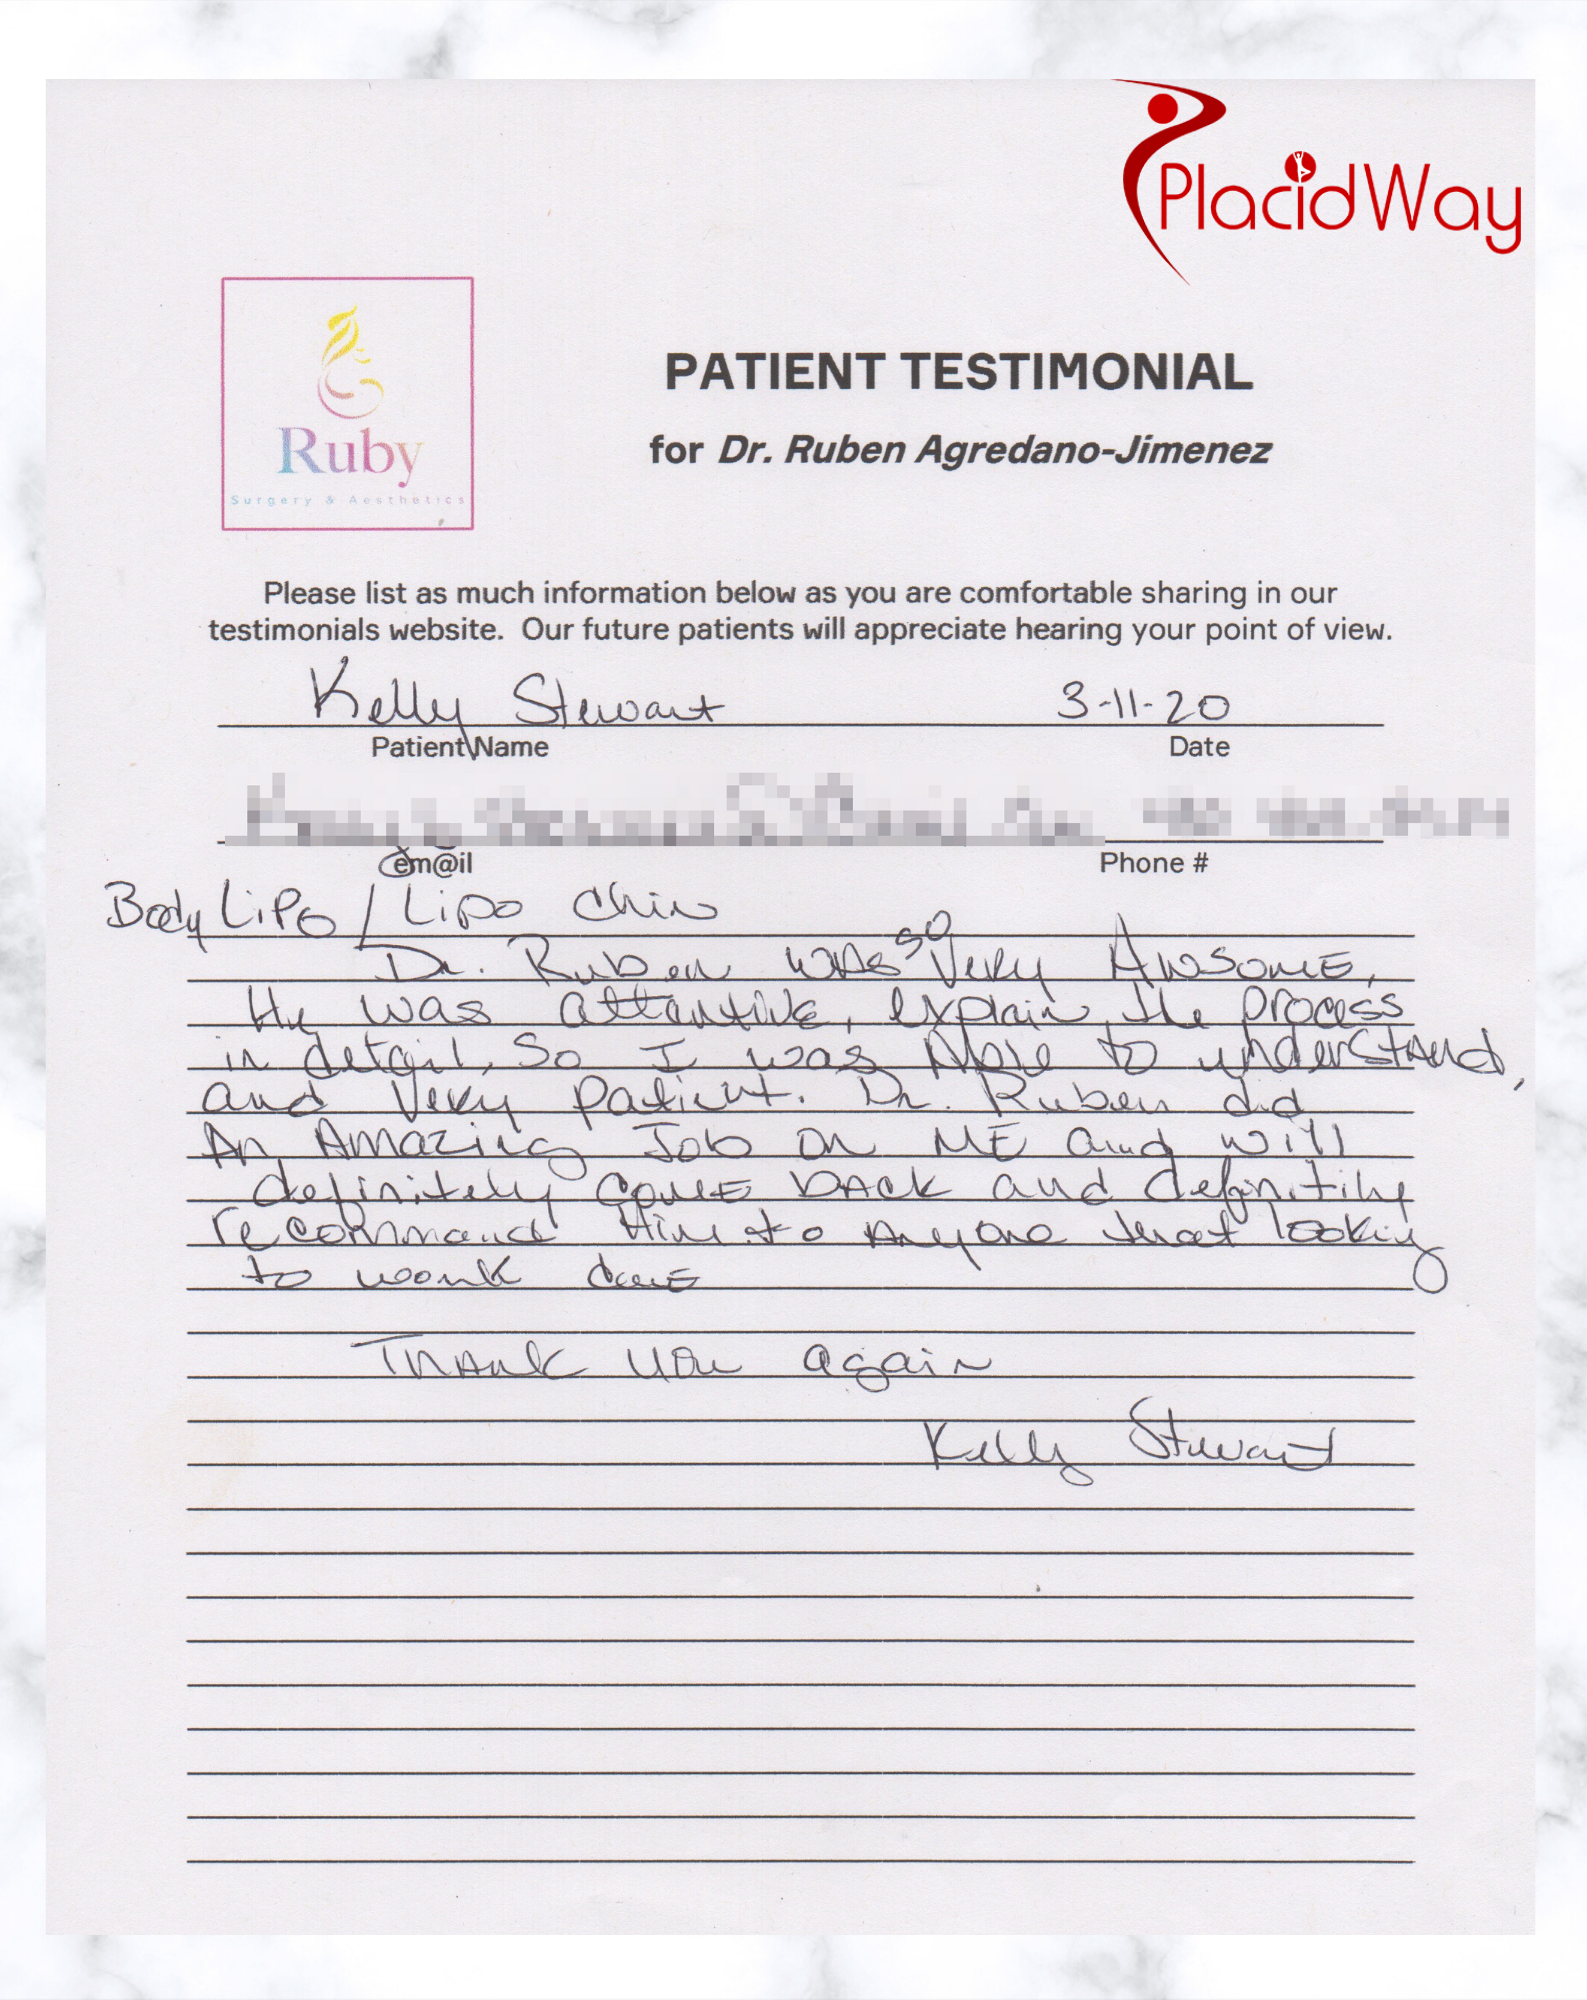 PlacidWay
Ruby
Surgery & Aesthetics
PATIENT TESTIMONIAL
for Dr. Ruben Agredano-Jimenez
Please list as much information below as you are comfortable sharing in our
testimonials website. Our future patients will appreciate hearing your point of view.
Kelly Stewart 3-11-20
Patient Name Date
em@il Phone #
Body Lipo / Lipo Chin
Dr. Ruben was so very Awsome,
He was attentive, explain the process
in detail, so I was Able to understand,
and Very patient. Dr. Ruben did
An Amazing Job on ME and will
definitely come back and definitily
recommand Him to Anyone that looking
to work done
Thank you again
Kelly Stewart